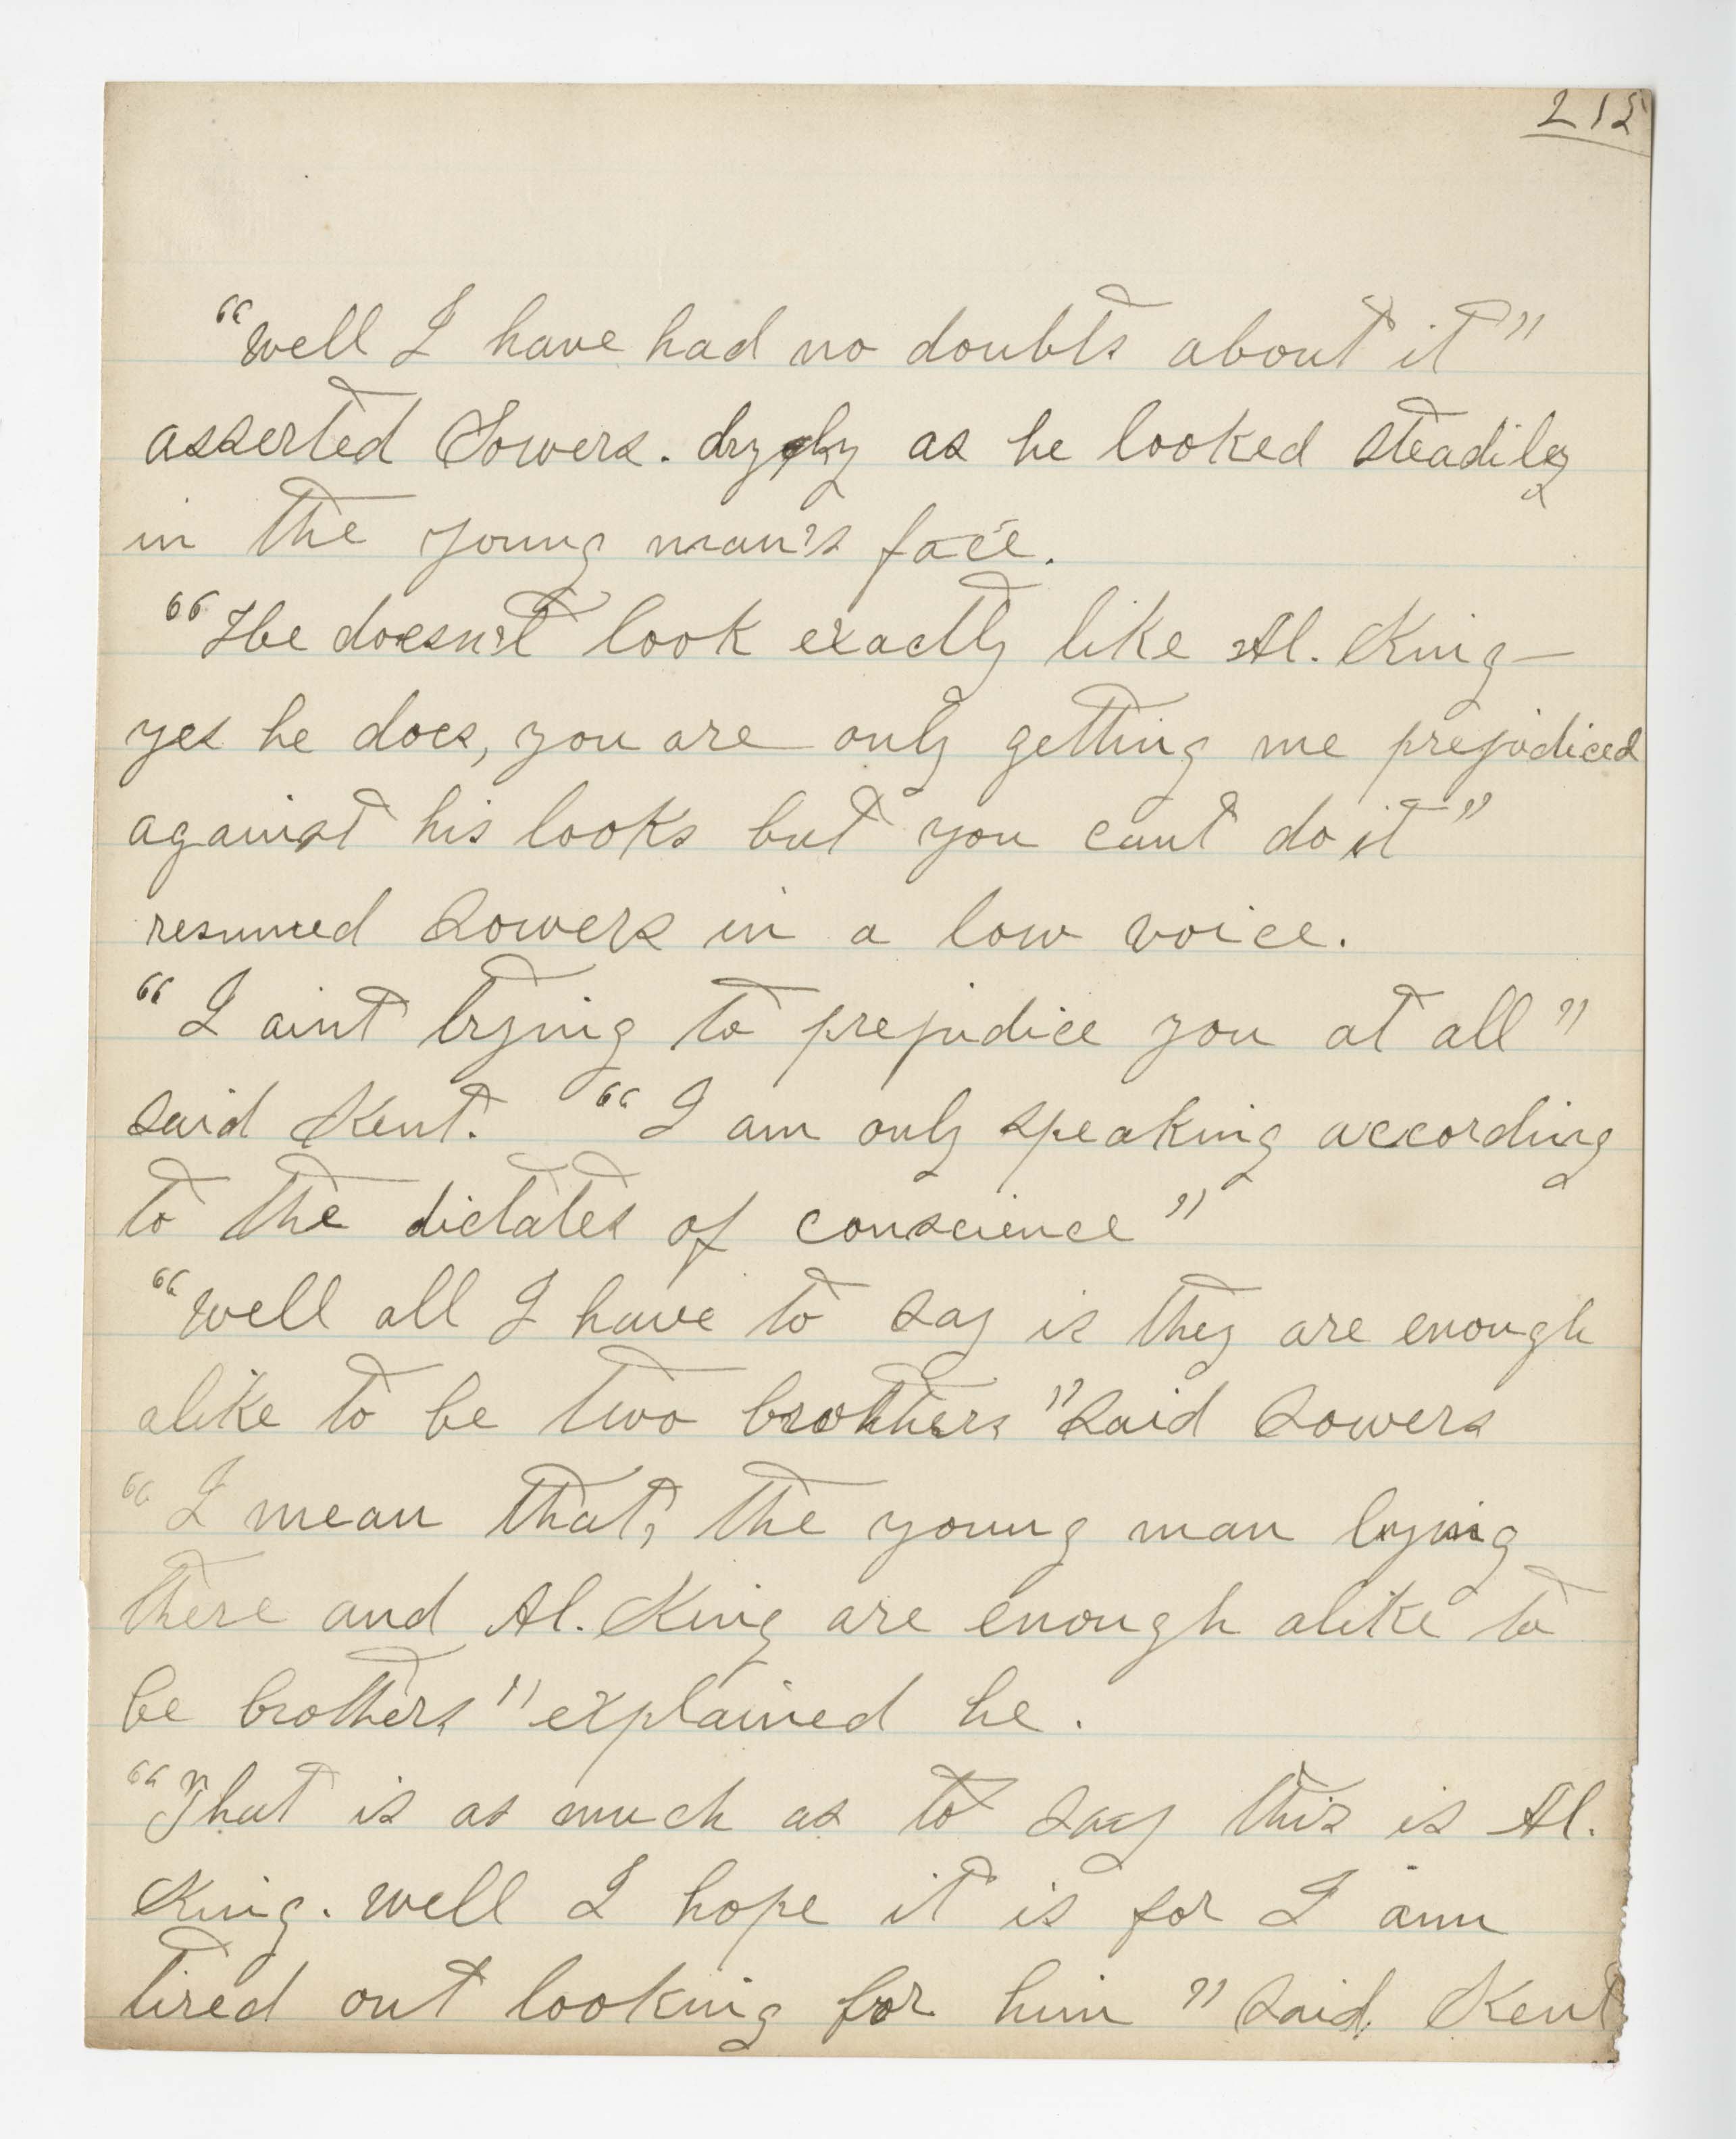 215
"Well I have had no doubts about it"
asserted Sowers. dryly as he looked steadily
in the young man's face.
"He doesn't look exactly like Al. King—
yes he does, you are only getting me prejudiced
against his looks but you cant do it"
resumed Sowers in a low voice.
"I aint trying to prejudice you at all"
said Kent. "I am only speaking according
to the dictates of conscience"
"Well all I have to say is they are enough
alike to be two brothers" said Sowers
"I mean that, the young man lying
there and Al. King are enough alike to
be brothers" explained he.
"That is as much as to say this is Al.
King. Well I hope it is for I am
tired out looking for him" said Kent